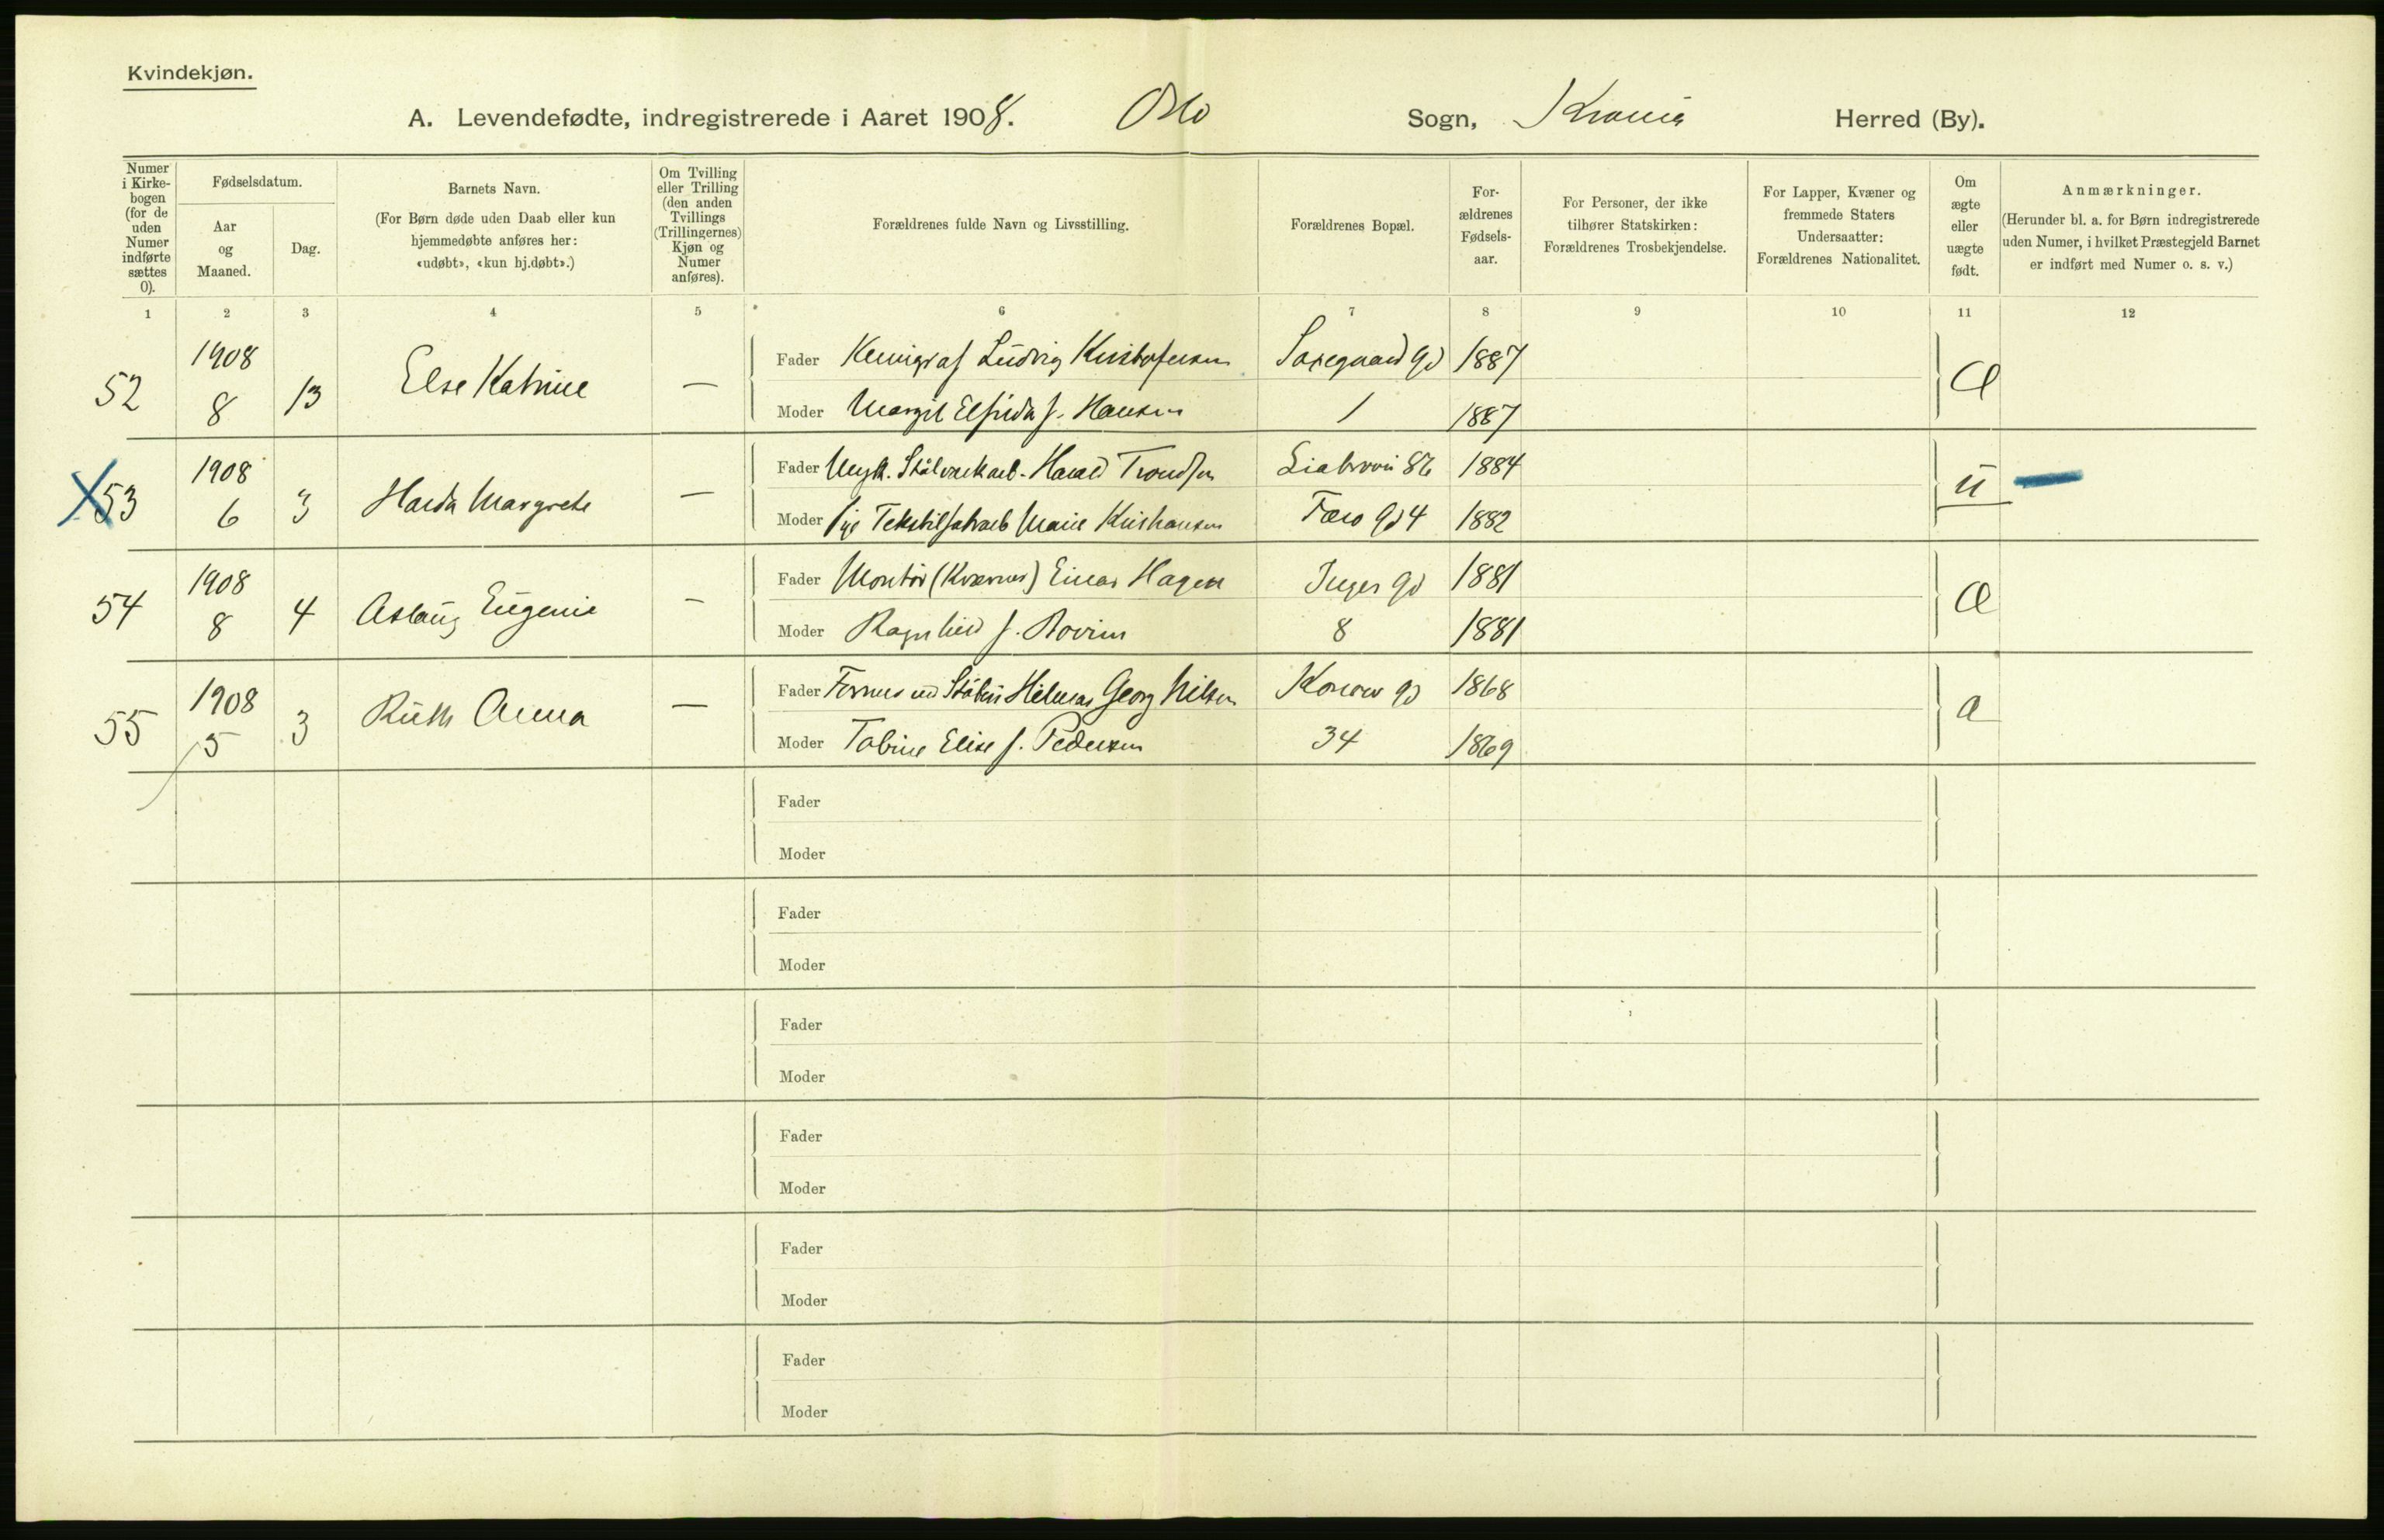 Kvindekjøn.
A. Levendefødte, indregistrerede i Aaret 1908. Oslo Sogn, Krania Herred (By).
Numer i Kirkebogen (for de uden Numer indførte sættes 0).
Fødselsdatum.
Aar og Maaned.
Dag.
Barnets Navn.
(For Børn døde uden Daab eller kun hjemmedøbte anføres her: «udøbt», «kun hj.døbt».)
Om Tvilling eller Trilling (den anden Tvillings (Trillingernes) Kjøn og Numer anføres).
Forældrenes fulde Navn og Livsstilling.
Forældrenes Bopæl.
Forældrenes Fødselsaar.
For Personer, der ikke tilhører Statskirken: Forældrenes Trosbekjendelse.
For Lapper, Kvæner og fremmede Staters Undersaatter: Forældrenes Nationalitet.
Om ægte eller uægte født.
Anmærkninger.
(Herunder bl. a. for Børn indregistrerede uden Numer, i hvilket Præstegjeld Barnet er indført med Numer o. s. v.)
1 2 3 4 5 6 7 8 9 10 11 12
52 1908 8 13 Else Katrine —
Fader Kemigraf Ludvig Kristofersen Saxegaard gd 1887
Moder Margit Elfrida f. Hansen 1 1887
Æ
X 53 1908 6 3 Margrete —
Fader Ungk. Harald Trondsen 1884
Moder pige Marie Kristiansen 4 1882
u
54 1908 8 4 Aslaug Eugenie —
Fader Montør (Kværner) Einar Hagen Inges gd 1881
Moder Ragnhild f. Bovim 8 1881
Æ
55 1908 5 3 Ruth Anna —
Fader Hilmar Georg Nilsen Konow gd 1868
Moder Tobine Elise f. Pedersen 34 1869
Æ
Fader
Moder
Fader
Moder
Fader
Moder
Fader
Moder
Fader
Moder
Fader
Moder